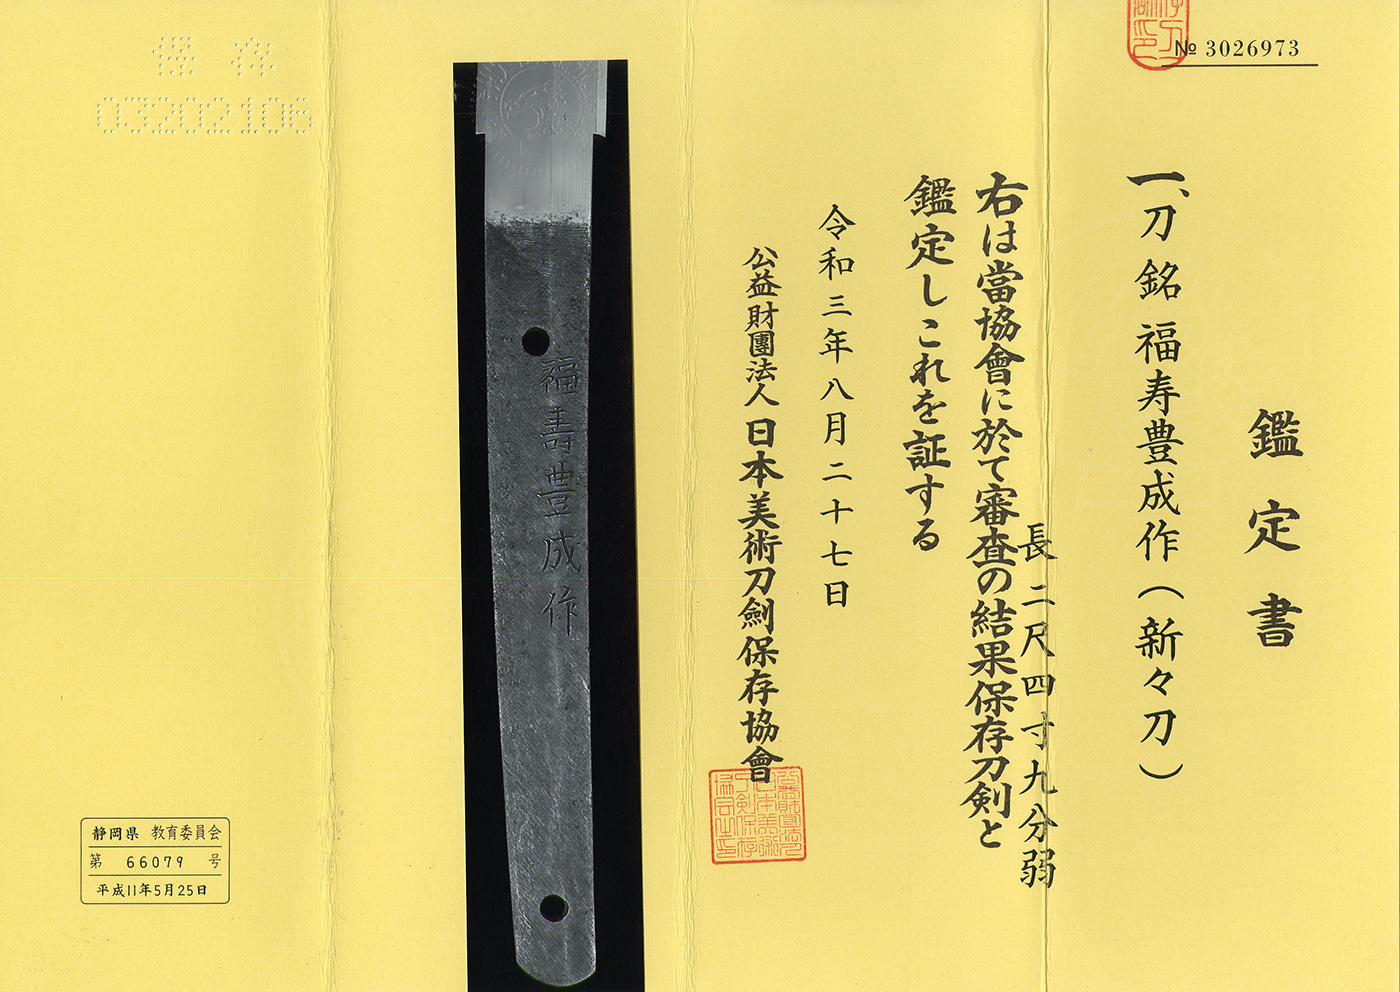 № 3026973
鑑定書
一、刀 銘 福寿豊成作(新々刀)
長 二尺四寸九分弱
右は當協會に於て審査の結果保存刀剣と
鑑定しこれを証する
令和三年八月二十七日
公益財團法人 日本美術刀劍保存協會
福壽豊成作
保存
03202106
静岡県 教育委員会
第 66079 号
平成11年5月25日